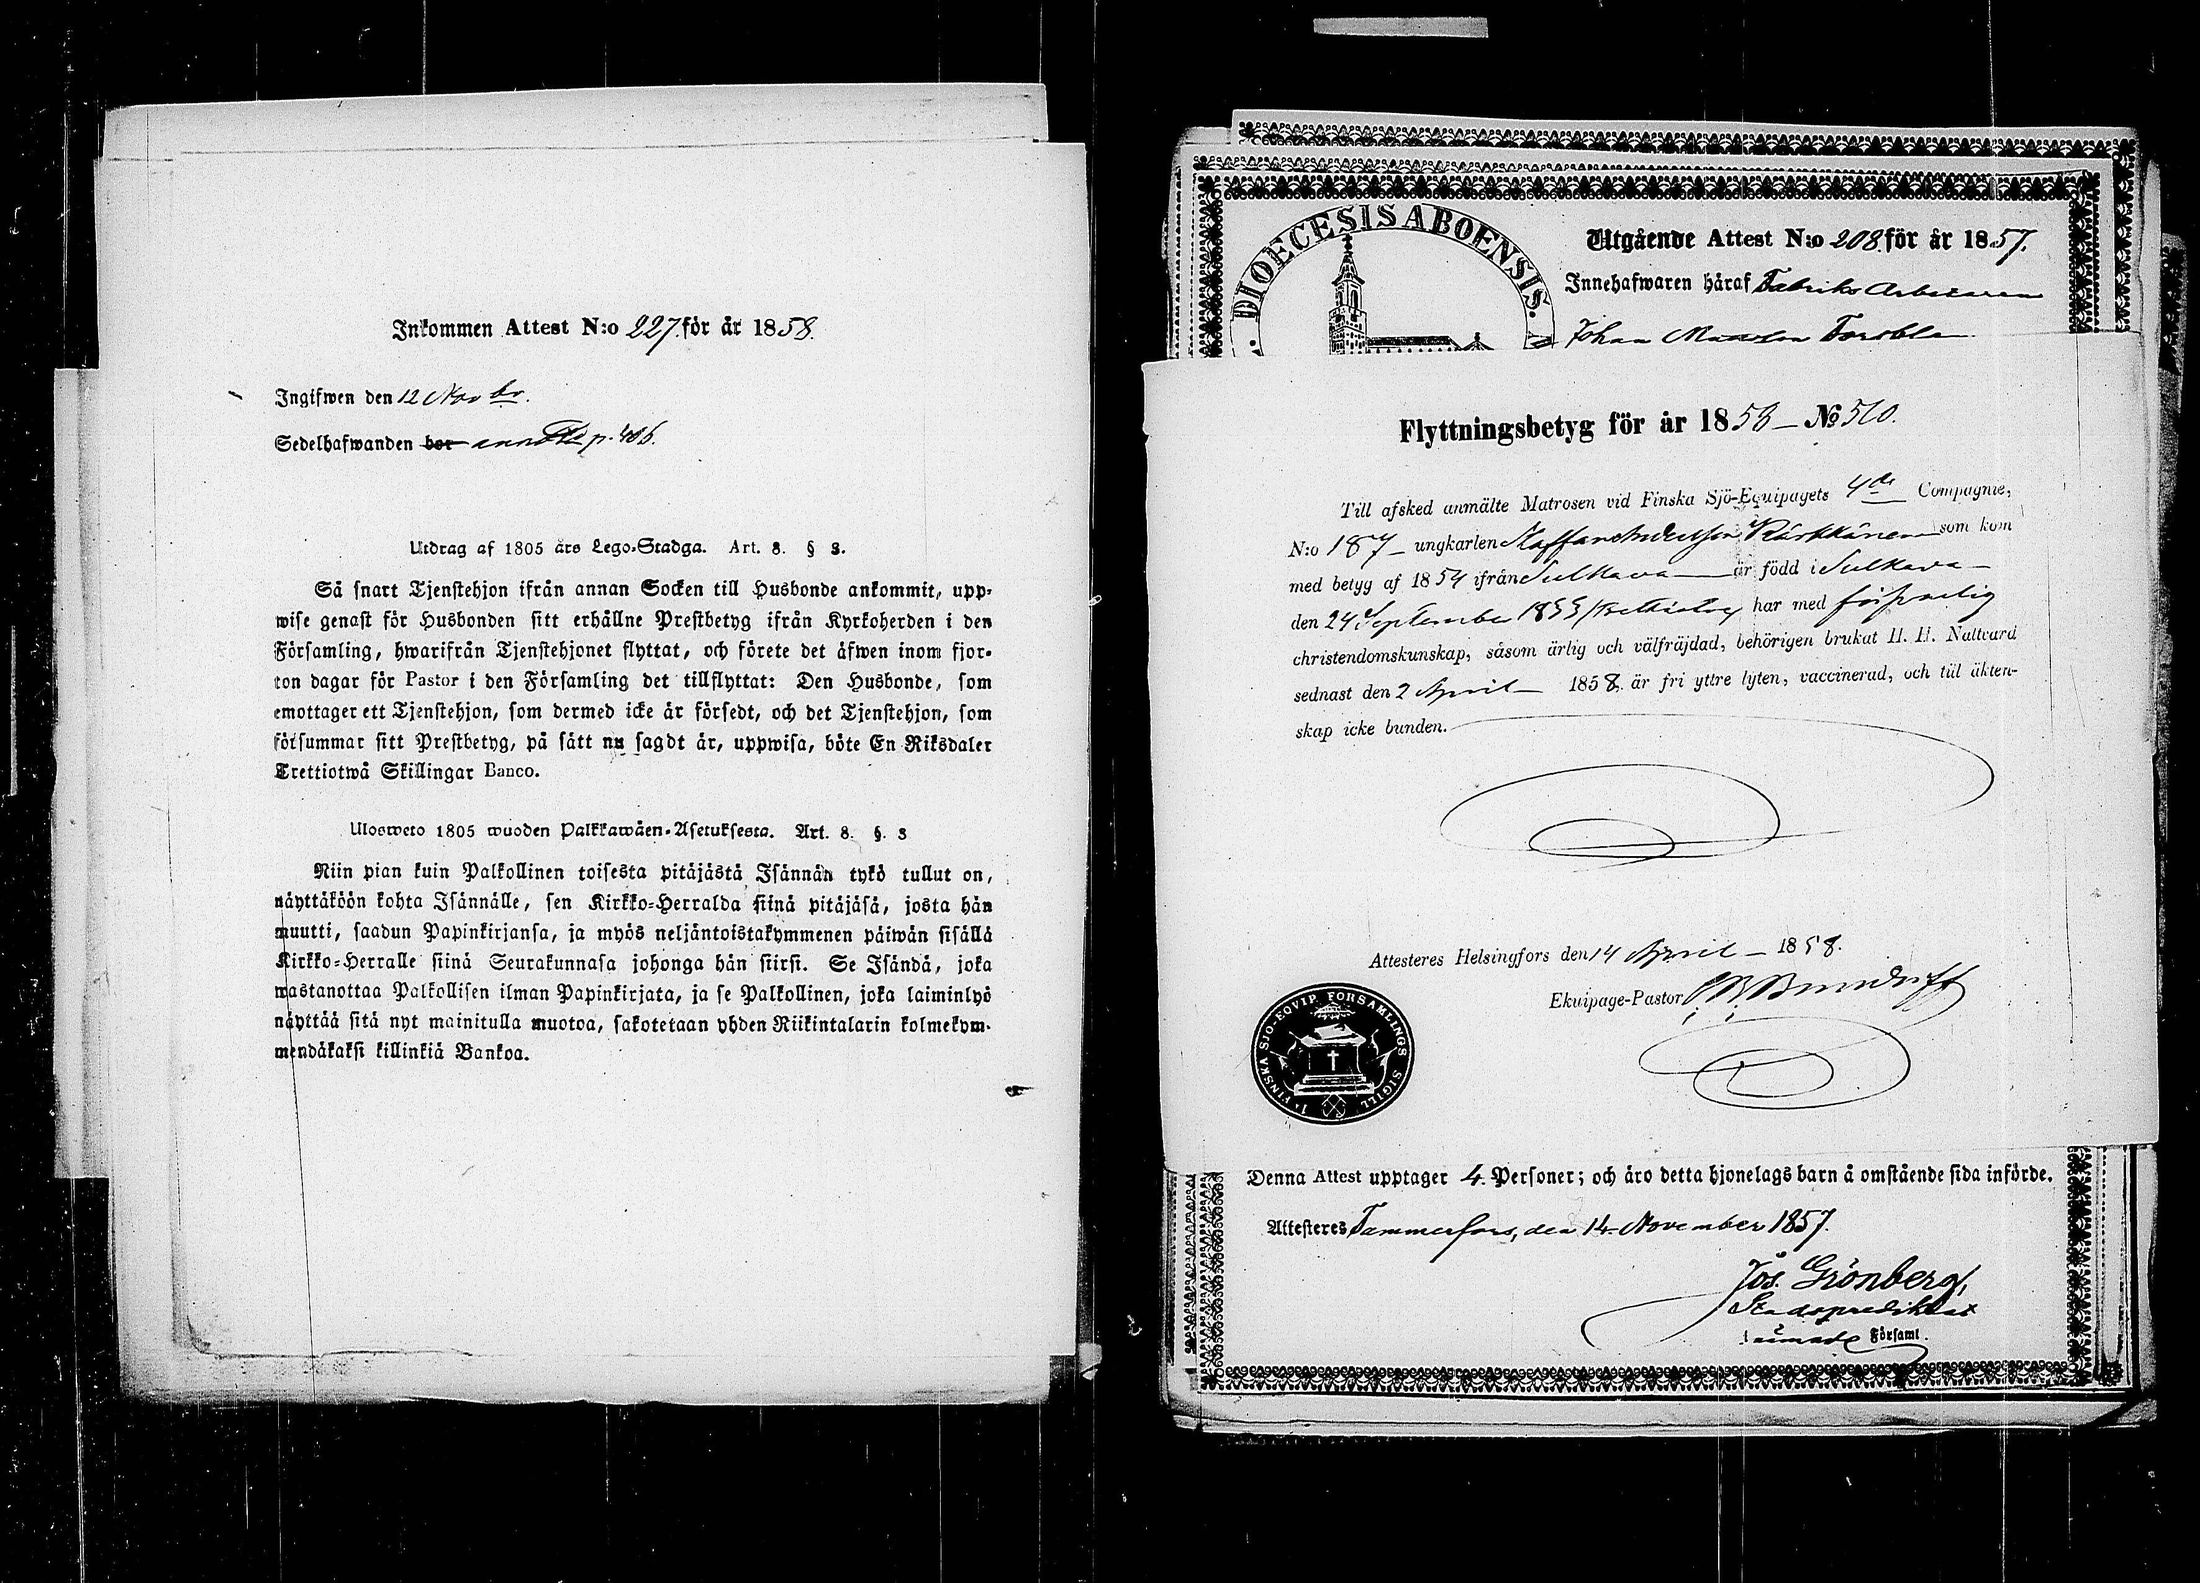 Inkommen Attest N:o 227 för år 1858.
Ingifwen den 12 Novbr.
Sedelhafwanden bor p. 406.
Utdrag af 1805 års Lego-Stadga. Art. 8. § 3.
Så snart Tjenstehjon ifrån annan Socken till Husbonde ankommit, upp-
wise genast för Husbonden sitt erhållne Prestbetyg ifrån Kyrkoherden i den
Församling, hwarifrån Tjenstehjonet flyttat, och förete det äfwen inom fjor-
ton dagar för Pastor i den Församling det tillflyttat: Den Husbonde, som
emottager ett Tjenstehjon, som dermed icke är försedt, och det Tjenstehjon, som
försummar sitt Prestbetyg, på sätt nu sagdt är, uppwisa, böte En Riksdaler
Trettiotwå Skillingar Banco.
Ulosweto 1805 wuoden Palkkawäen-Asetuksesta. Art. 8. §. 3
Niin pian kuin Palkollinen toisesta pitäjästä Isännän tykö tullut on,
näyttäköön kohta Isännälle, sen Kirkko-Herralda siinä pitäjäsä, josta hän
muutti, saadun Papinkirjansa, ja myös neljäntoistakymmenen päiwän sisällä
Kirkko-Herralle siinä Seurakunnasa johonga hän siirsi. Se Isändä, joka
wastanottaa Palkollisen ilman Papinkirjata, ja se Palkollinen, joka laiminlyö
näyttää sitä nyt mainitulla muotoa, sakotetaan yhden Riikintalarin kolmekym-
mendäkaksi killinkiä Bankoa.
DIOECESIS ABOENSIS.
Utgående Attest N:o 208 för år 1857.
Innehafwaren häraf Fabriks Arbetaren
Johan
Flyttningsbetyg för år 1858 – No 510.
Till afsked anmälte Matrosen vid Finska Sjö-Equipagets 4de Compagnie,
N:o 187 – ungkarlen Staffan Andersson Kärkkänen som kom
med betyg af 1854 ifrån Sulkava är född i Sulkava –
den 24 September 1833 har med försvarlig
christendomskunskap, såsom ärlig och välfräjdad, behörigen brukat H. H. Nattvard
sednast den 2 April – 1858, är fri yttre lyten, vaccinerad, och till äkten-
skap icke bunden.
Attesteres Helsingfors den 14 April – 1858.
Ekuipage-Pastor
1a FINSKA SJÖ-EQVIP. FÖRSAMLINGS SIGILL
Denna Attest upptager 4 Personer; och äro detta hjonelags barn å omstående sida införde.
Attesteres Tammerfors, den 14 November 1857.
Jos. Grönberg,
Stadspredikant
i nämnde Församl.